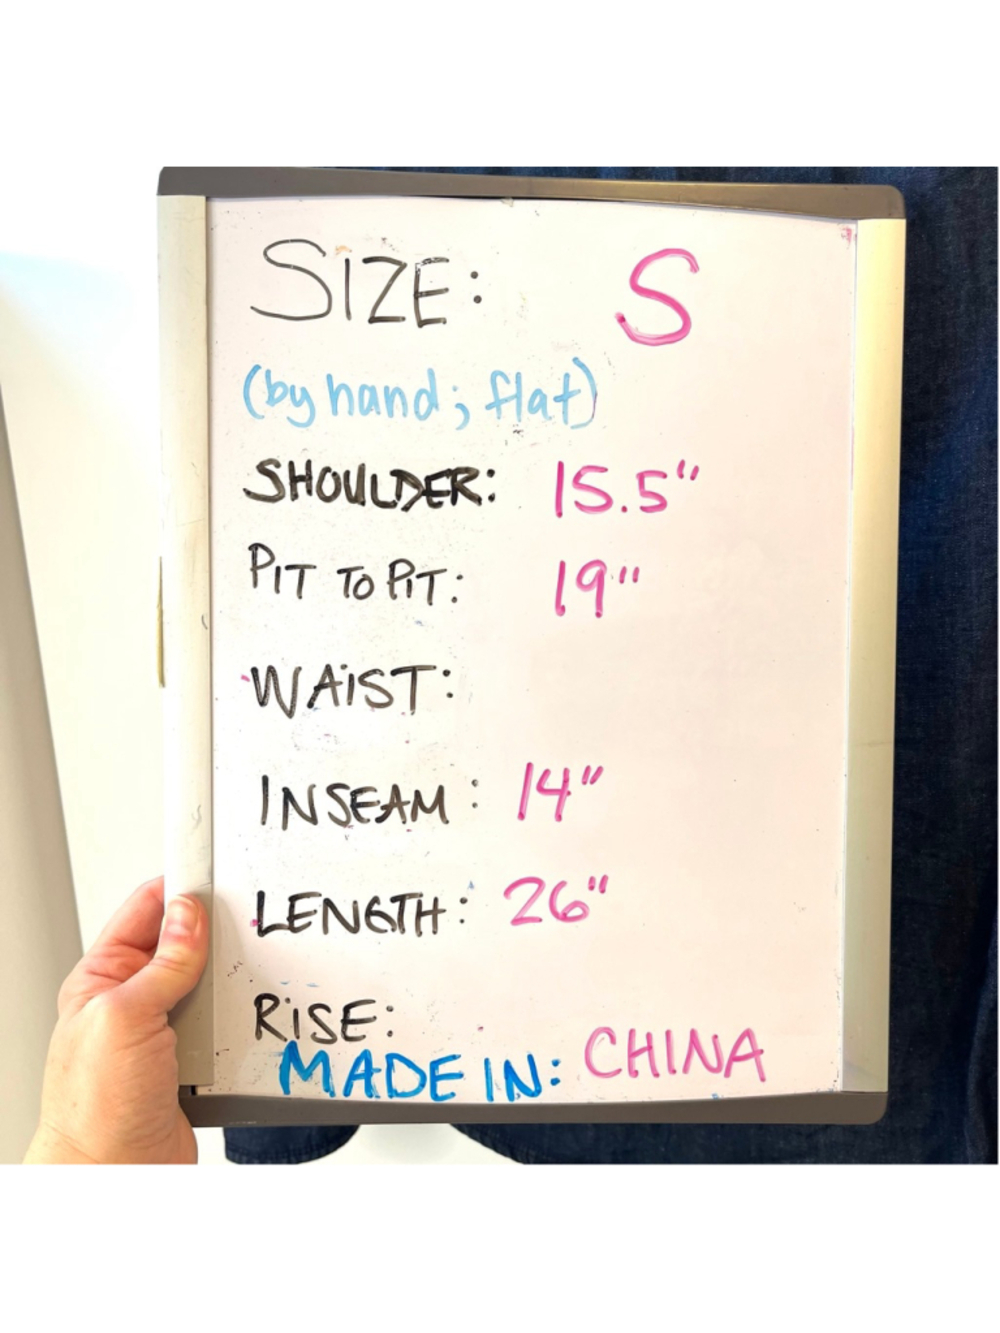 SIZE: S
(by hand; flat)
SHOULDER: 15.5"
PIT TO PIT: 19"
WAIST:
INSEAM: 14"
LENGTH: 26"
RISE:
MADE IN: CHINA